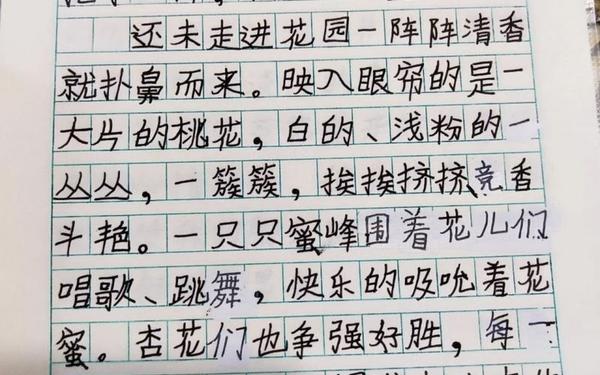 还未走进花园一阵阵清香
就扑鼻而来。映入眼帘的是一
大片的桃花，白的、浅粉的一
丛丛，一簇簇，挨挨挤挤竞香
斗艳。一只只蜜峰围着花儿们
唱歌、跳舞，快乐的吸吮着花
蜜。杏花们也争强好胜，每一